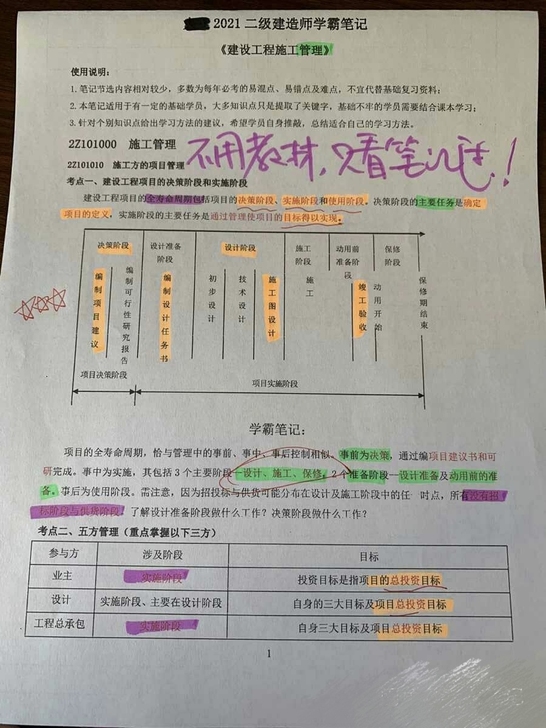 2021 二级建造师学霸笔记
《建设工程施工管理》
使用说明：
1. 笔记节选内容相对较少，多数为每年必考的易混点、易错点及难点，不宜代替基础复习资料；
2. 本笔记适用于有一定的基础学员，大多知识点只是提取了关键字，基础不牢的学员需要结合课本学习；
3. 针对个别知识点给出学习方法的建议，希望学员自身推敲，总结适合自己的学习方法。
2Z101000 施工管理
不用教材，只看笔记过！
2Z101010 施工方的项目管理
考点一、建设工程项目的决策阶段和实施阶段
建设工程项目的全寿命周期包括项目的决策阶段、实施阶段和使用阶段。决策阶段的主要任务是确定
项目的定义，实施阶段的主要任务是通过管理使项目的目标得以实现。
决策阶段 设计准备阶段 设计阶段 施工阶段 动用前准备阶段 保修阶段
编制项目建议 编制可行性研究报告 编制设计任务书 初步设计 技术设计 施工图设计 施工 竣工验收 动用开始 保修期结束
项目决策阶段 项目实施阶段
学霸笔记：
项目的全寿命周期，恰与管理中的事前、事中、事后控制相似。事前为决策，通过编项目建议书和可
研完成。事中为实施，其包括 3 个主要阶段—设计、施工、保修，2 个准备阶段—设计准备及动用前的准
备。事后为使用阶段。需注意，因为招投标与供货可能分布在设计及施工阶段中的任 时点，所有没有招
标阶段与供货阶段！了解设计准备阶段做什么工作？决策阶段做什么工作？
考点二、五方管理（重点掌握以下三方）
参与方 涉及阶段 目标
业主 实施阶段 投资目标是指项目的总投资目标
设计 实施阶段、主要在设计阶段 自身的三大目标及项目总投资目标
工程总承包 实施阶段 自身三大目标及项目总投资目标
1